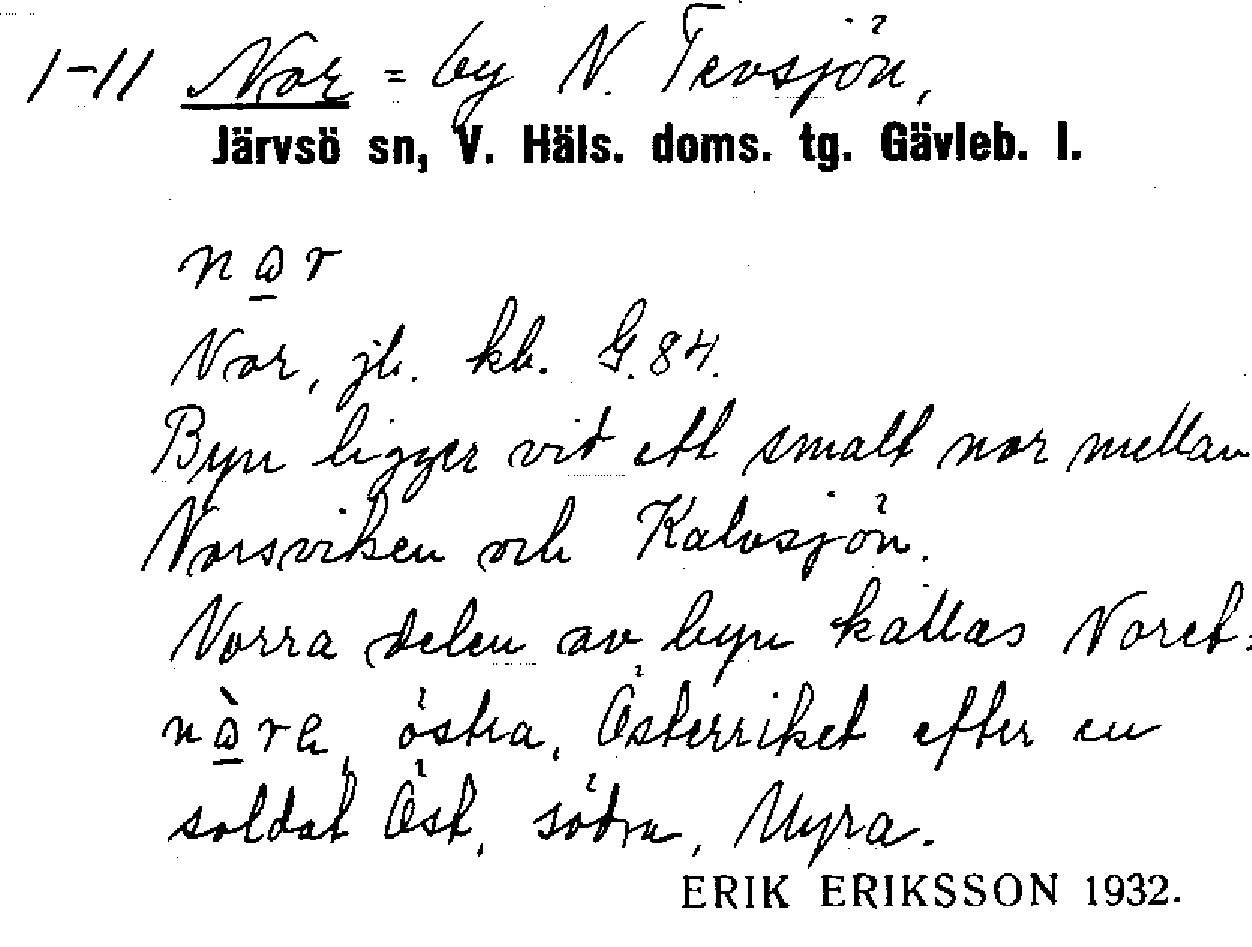 1-11 Nor = by N. Tevsjön,
Järvsö sn, V. Häls. doms. tg. Gävleb. l.
nωr
Nor, jb. kb. G.84.
Byn ligger vid ett smalt nor mellan
Norsviken och Kalvsjön.
Norra delen av byn kallas Noret:
nὼrə, östra, Österriket efter en
soldat Öst, södra, Myra.
ERIK ERIKSSON 1932.